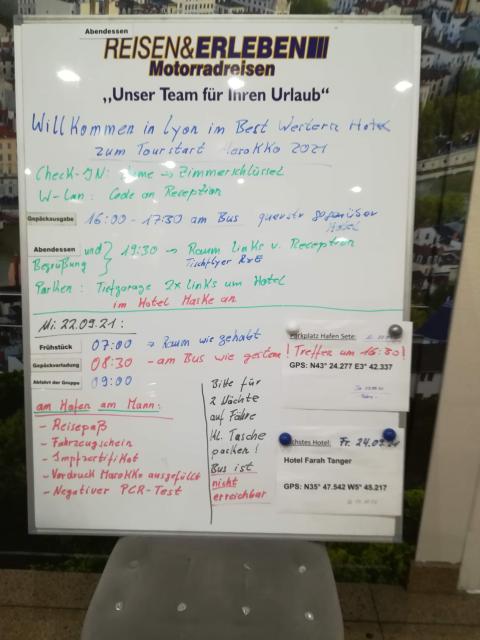 Abendessen
REISEN&ERLEBEN
Motorradreisen
„Unser Team für Ihren Urlaub“
Willkommen in Lyon im Best Western Hotel
zum Tourstart Marokko 2021
Check-IN: Name → Zimmerschlüssel
W-Lan: Code an Reception
Gepäckausgabe 16:00 - 17:30 am Bus querstr gegenüber
Hotel
Abendessen und 19:30 → Raum links v. Reception
Begrüßung Tischflyer R&E
Parken: Tiefgarage 2x links um Hotel
im Hotel Maske an
Mi. 22.09.21:
Frühstück 07:00 → Raum wie gehabt
Gepäckverladung 08:30 - am Bus wie gestern!
Abfahrt der Gruppe 09:00
am Hafen am Mann:
- Reisepaß
- Fahrzeugschein
- Impfzertifikat
- Vordruck Marokko ausgefüllt
- Negativer PCR-Test
Bitte für
2 Nächte
auf Fähre
kl. Tasche
packen!
Bus ist
nicht
erreichbar
Parkplatz Hafen Sete:
Treffen um 16:30!
GPS: N43° 24.277 E3° 42.337
Nächstes Hotel: Fr. 24.09.21
Hotel Farah Tanger
GPS: N35° 47.542 W5° 45.217